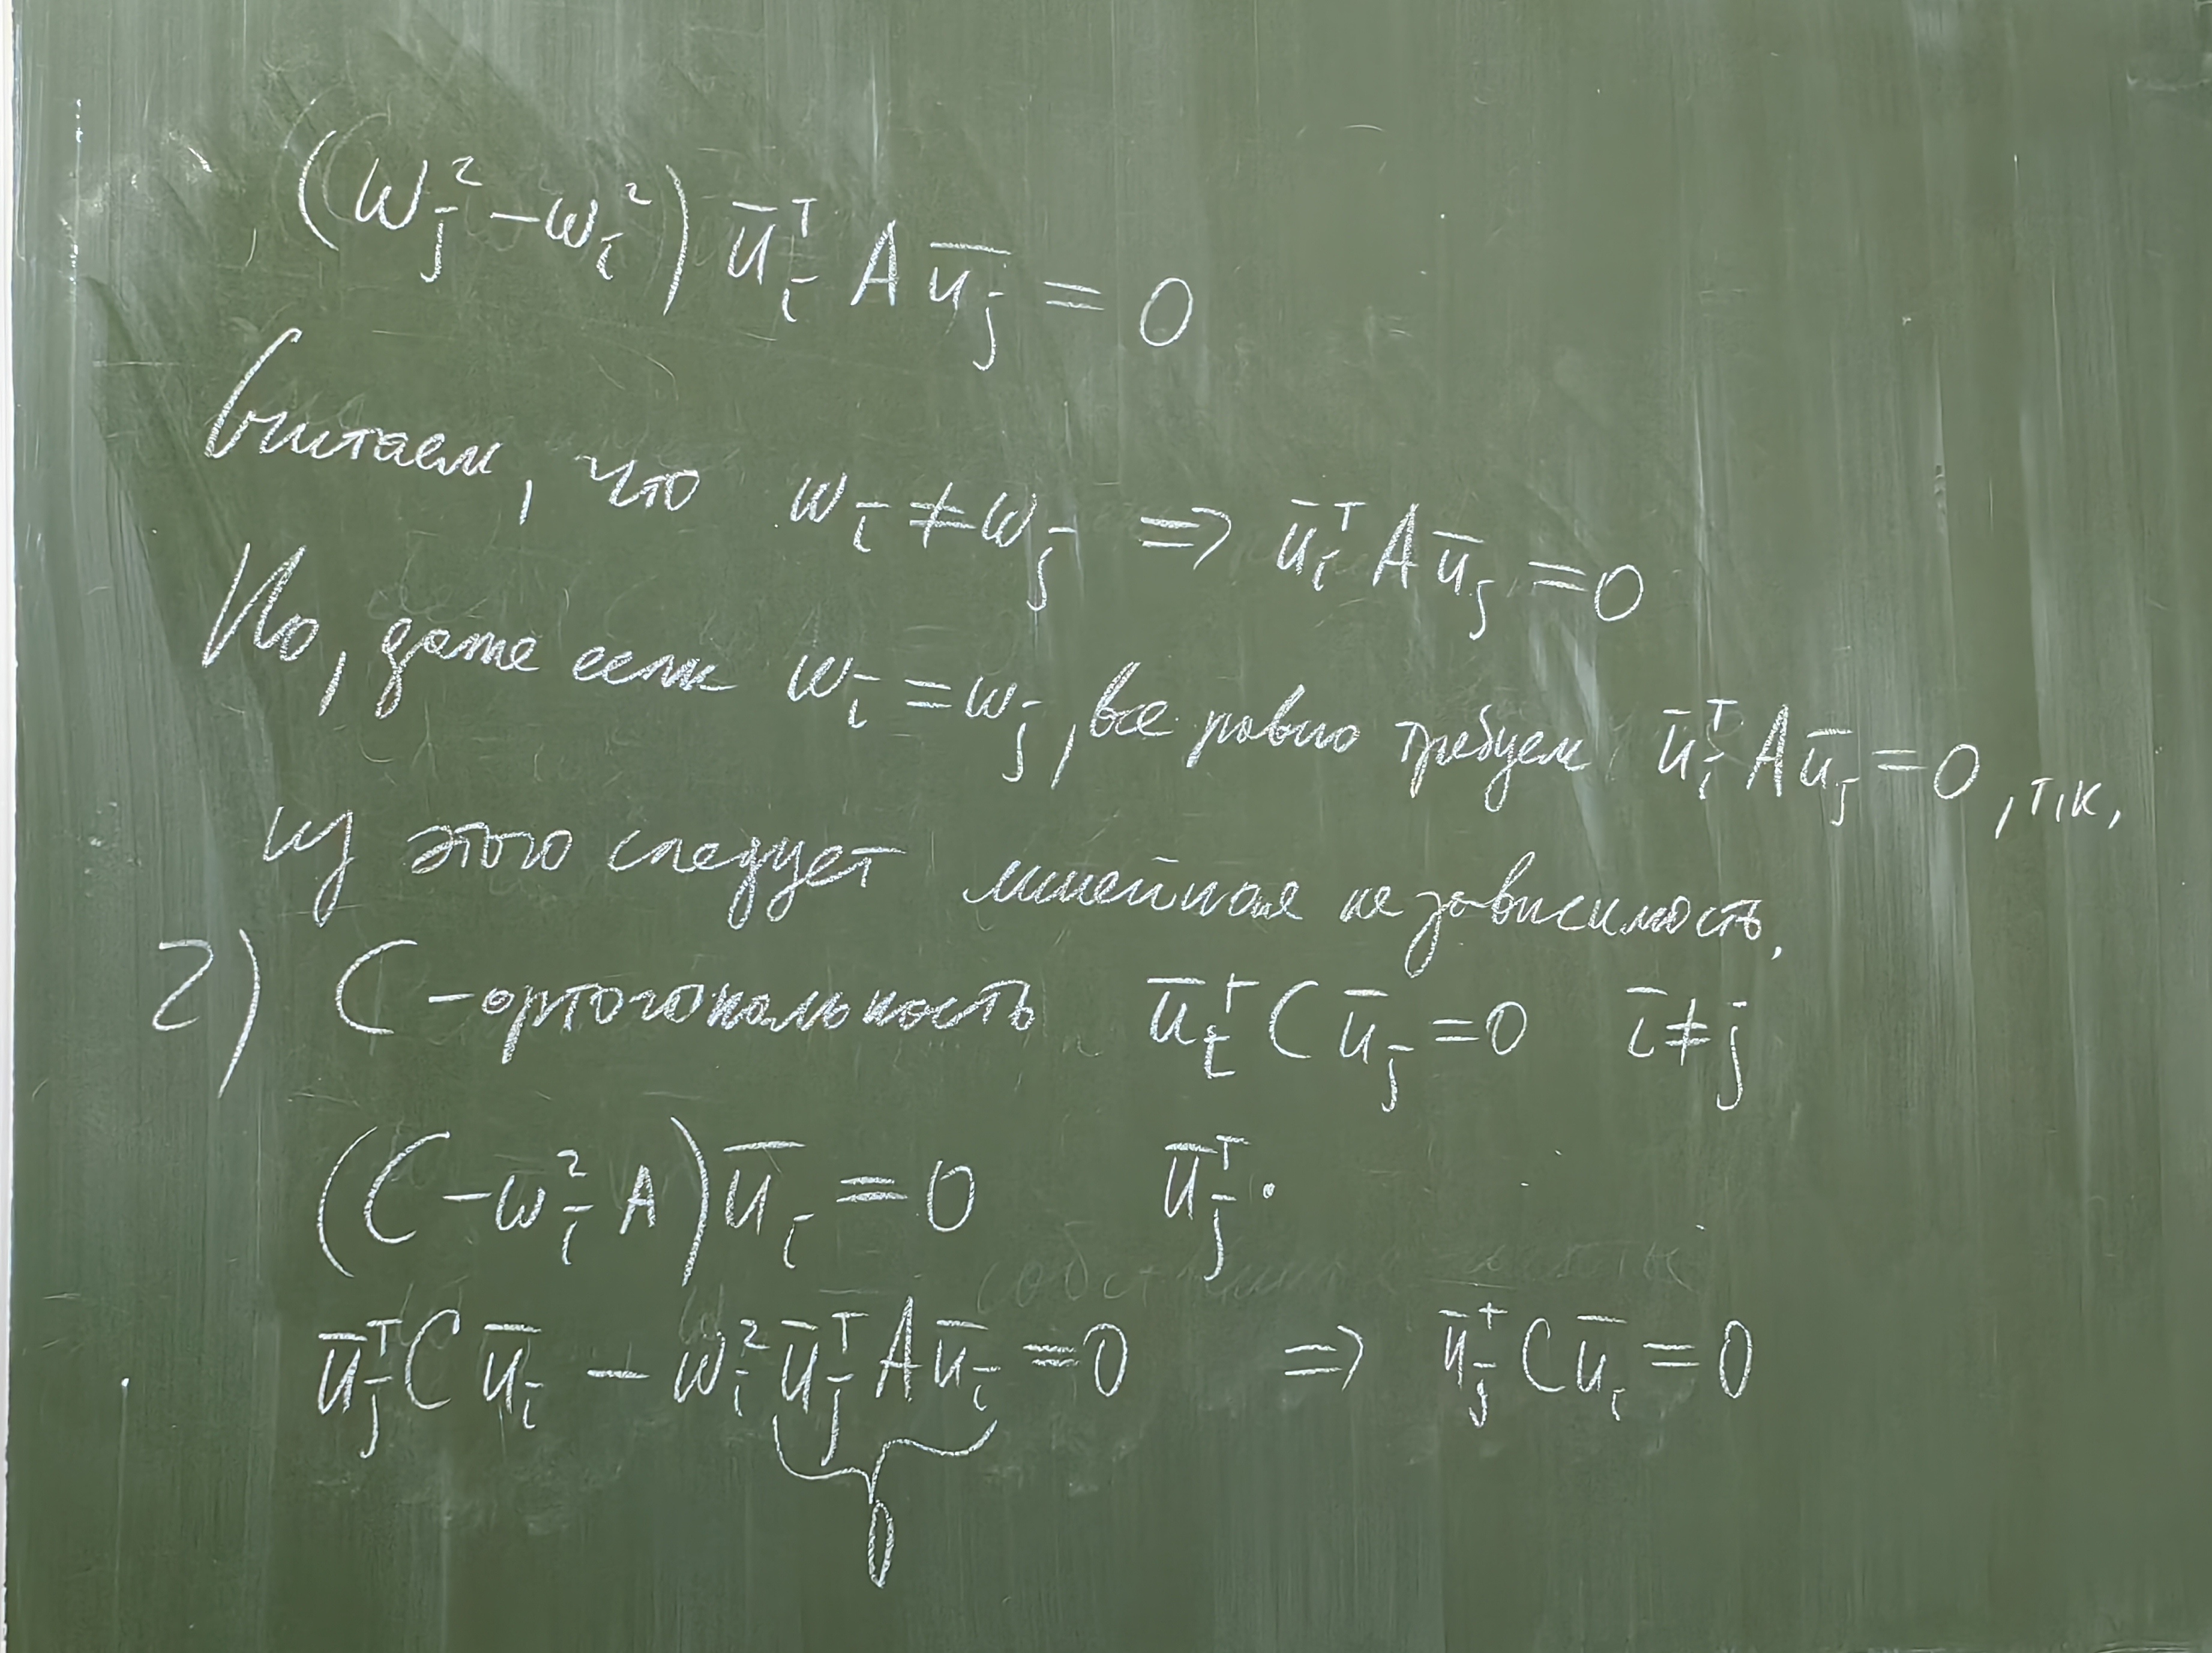 (ω_j² − ω_i²) ū_i^T A ū_j = 0
Считаем, что ω_i ≠ ω_j ⇒ ū_i^T A ū_j = 0
Но, даже если ω_i = ω_j, все равно требуем ū_i^T A ū_j = 0, т.к.
из этого следует линейная независимость.
2) C-ортогональность ū_i^T C ū_j = 0 i ≠ j
(C − ω_i² A) ū_i = 0 ū_j^T ·
ū_j^T C ū_i − ω_i² ū_j^T A ū_i = 0 ⇒ ū_j^T C ū_i = 0
0